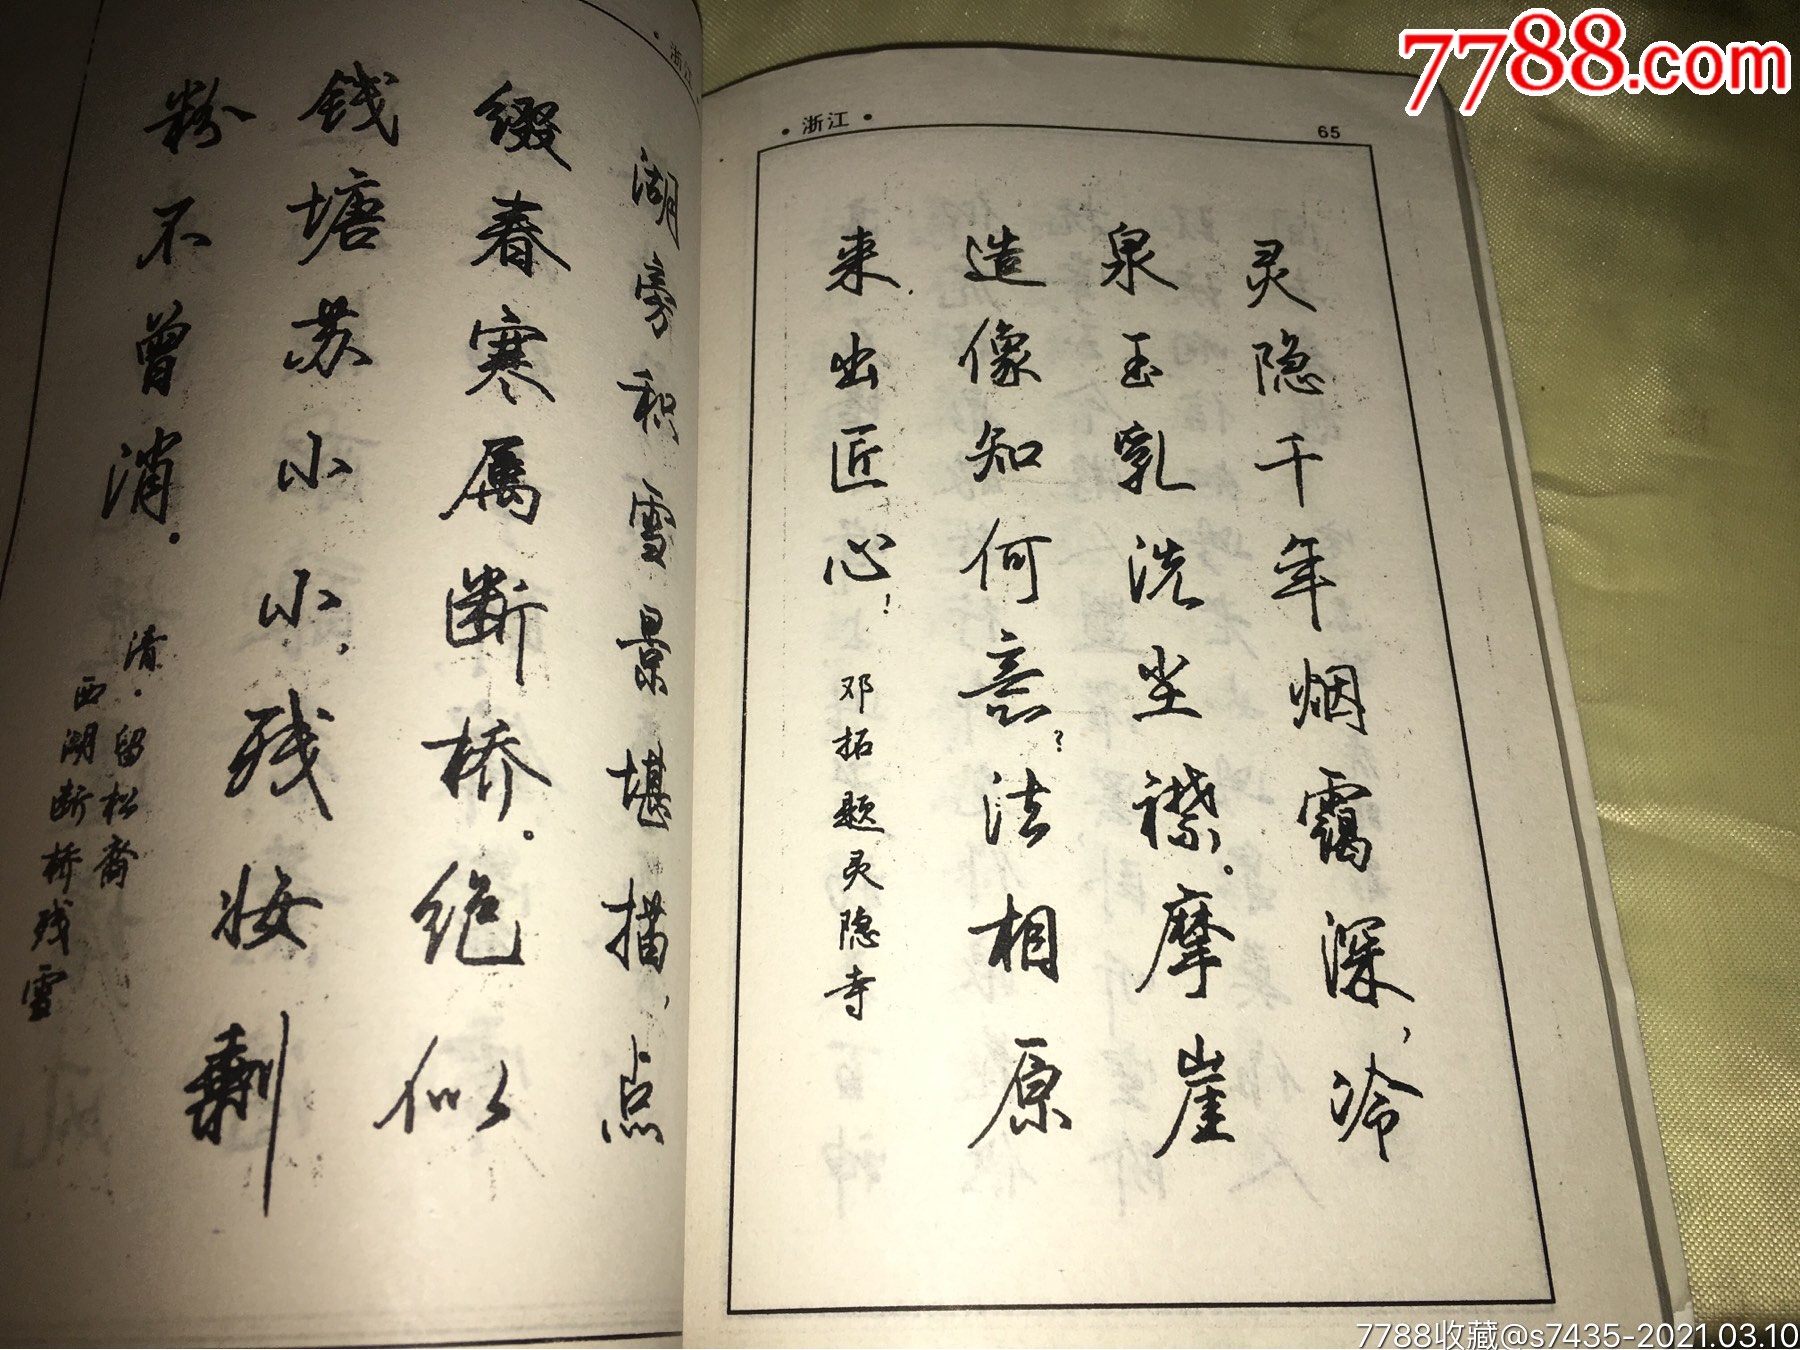 7788.com
·浙江·
65
灵隐千年烟霭深，冷
泉玉乳洗尘襟。摩崖
造像知何意？法相原
来出匠心！
邓拓题灵隐寺
·浙江
湖旁积雪景堪描，点
缀春寒属断桥。绝似
钱塘苏小小，残妆剩
粉不曾消。
清·留松裔
西湖断桥残雪
7788收藏@s7435-2021.03.10